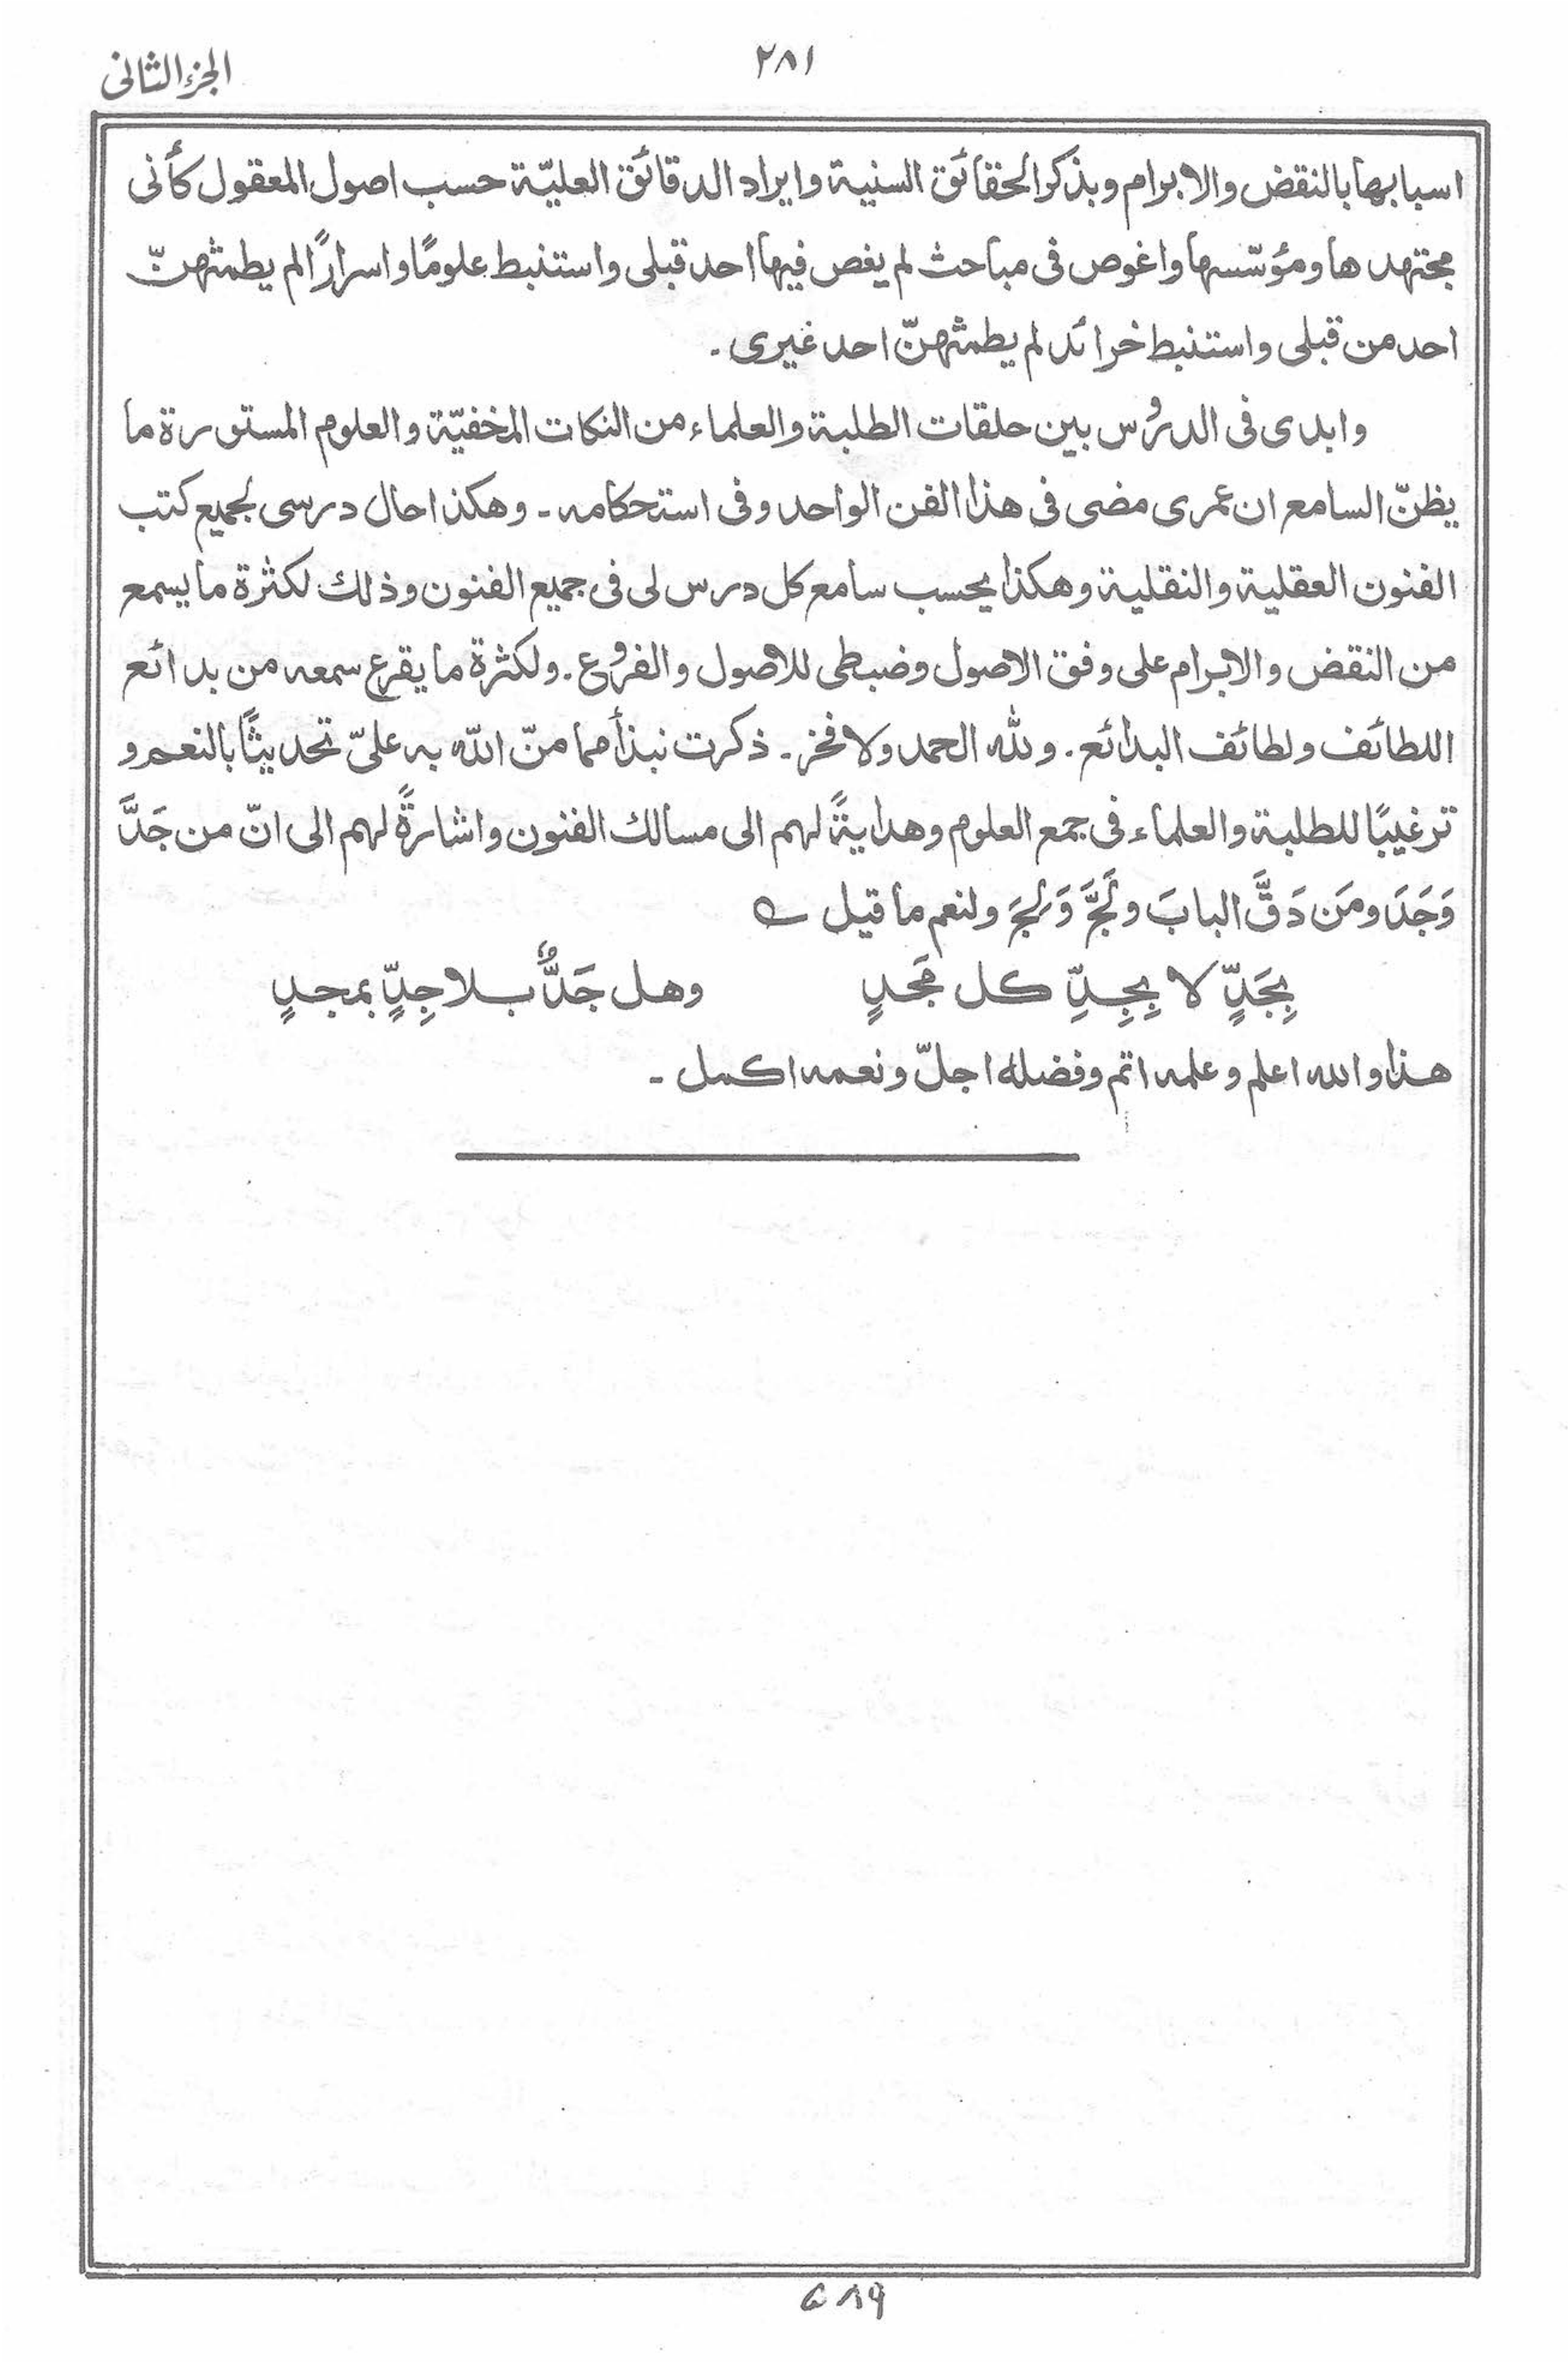 الجزء الثانی
۲۸۱
اسبابها بالنقض والابرام وبذكر الحقائق السنية وايراد الدقائق العليّة حسب اصول المعقول كأنی
مجتهدها ومؤسّسها واغوص فی مباحث لم يغص فيها احد قبلی واستنبط علومًا واسرارًا لم يطمثهنّ
احد من قبلی واستنبط خرائد لم يطمثهنّ احد غيری ۔
وابدی فی الدرُوس بين حلقات الطلبة والعلماء من النكات المخفيّة والعلوم المستورة ما
يظنّ السامع ان عمری مضی فی هذا الفن الواحد وفی استحكامه ۔ وهكذا حال درسی لجميع كتب
الفنون العقلية والنقلية وهكذا يحسب سامع كل درس لی فی جميع الفنون وذلك لكثرة ما يسمع
من النقض والابرام علی وفق الاصول وضبطی للاصول والفرُوع ۔ ولكثرة ما يقرع سمعه من بدائع
اللطائف ولطائف البدائع ۔ ولله الحمد ولا فخز ۔ ذكرت نبذأ مما منّ اللّٰه به علیّ تحديثًا بالنعم و
ترغيبًا للطلبة والعلماء فی جمع العلوم وهدايةً لهم الی مسالك الفنون واشارةً لهم الی انّ من جَدَّ
وَجَدَ ومَن دَقَّ البابَ ولَجَّ وَلَجَ ولنعم ما قيل ؎
بِجَدٍّ لا بِجِدِّ كل مَجدٍ وهل جَدٌّ بلا جِدٍّ بمجدٍ
هذا والله اعلم وعلمه اتم وفضله اجلّ ونعمه اكمل ۔
۶۸۹